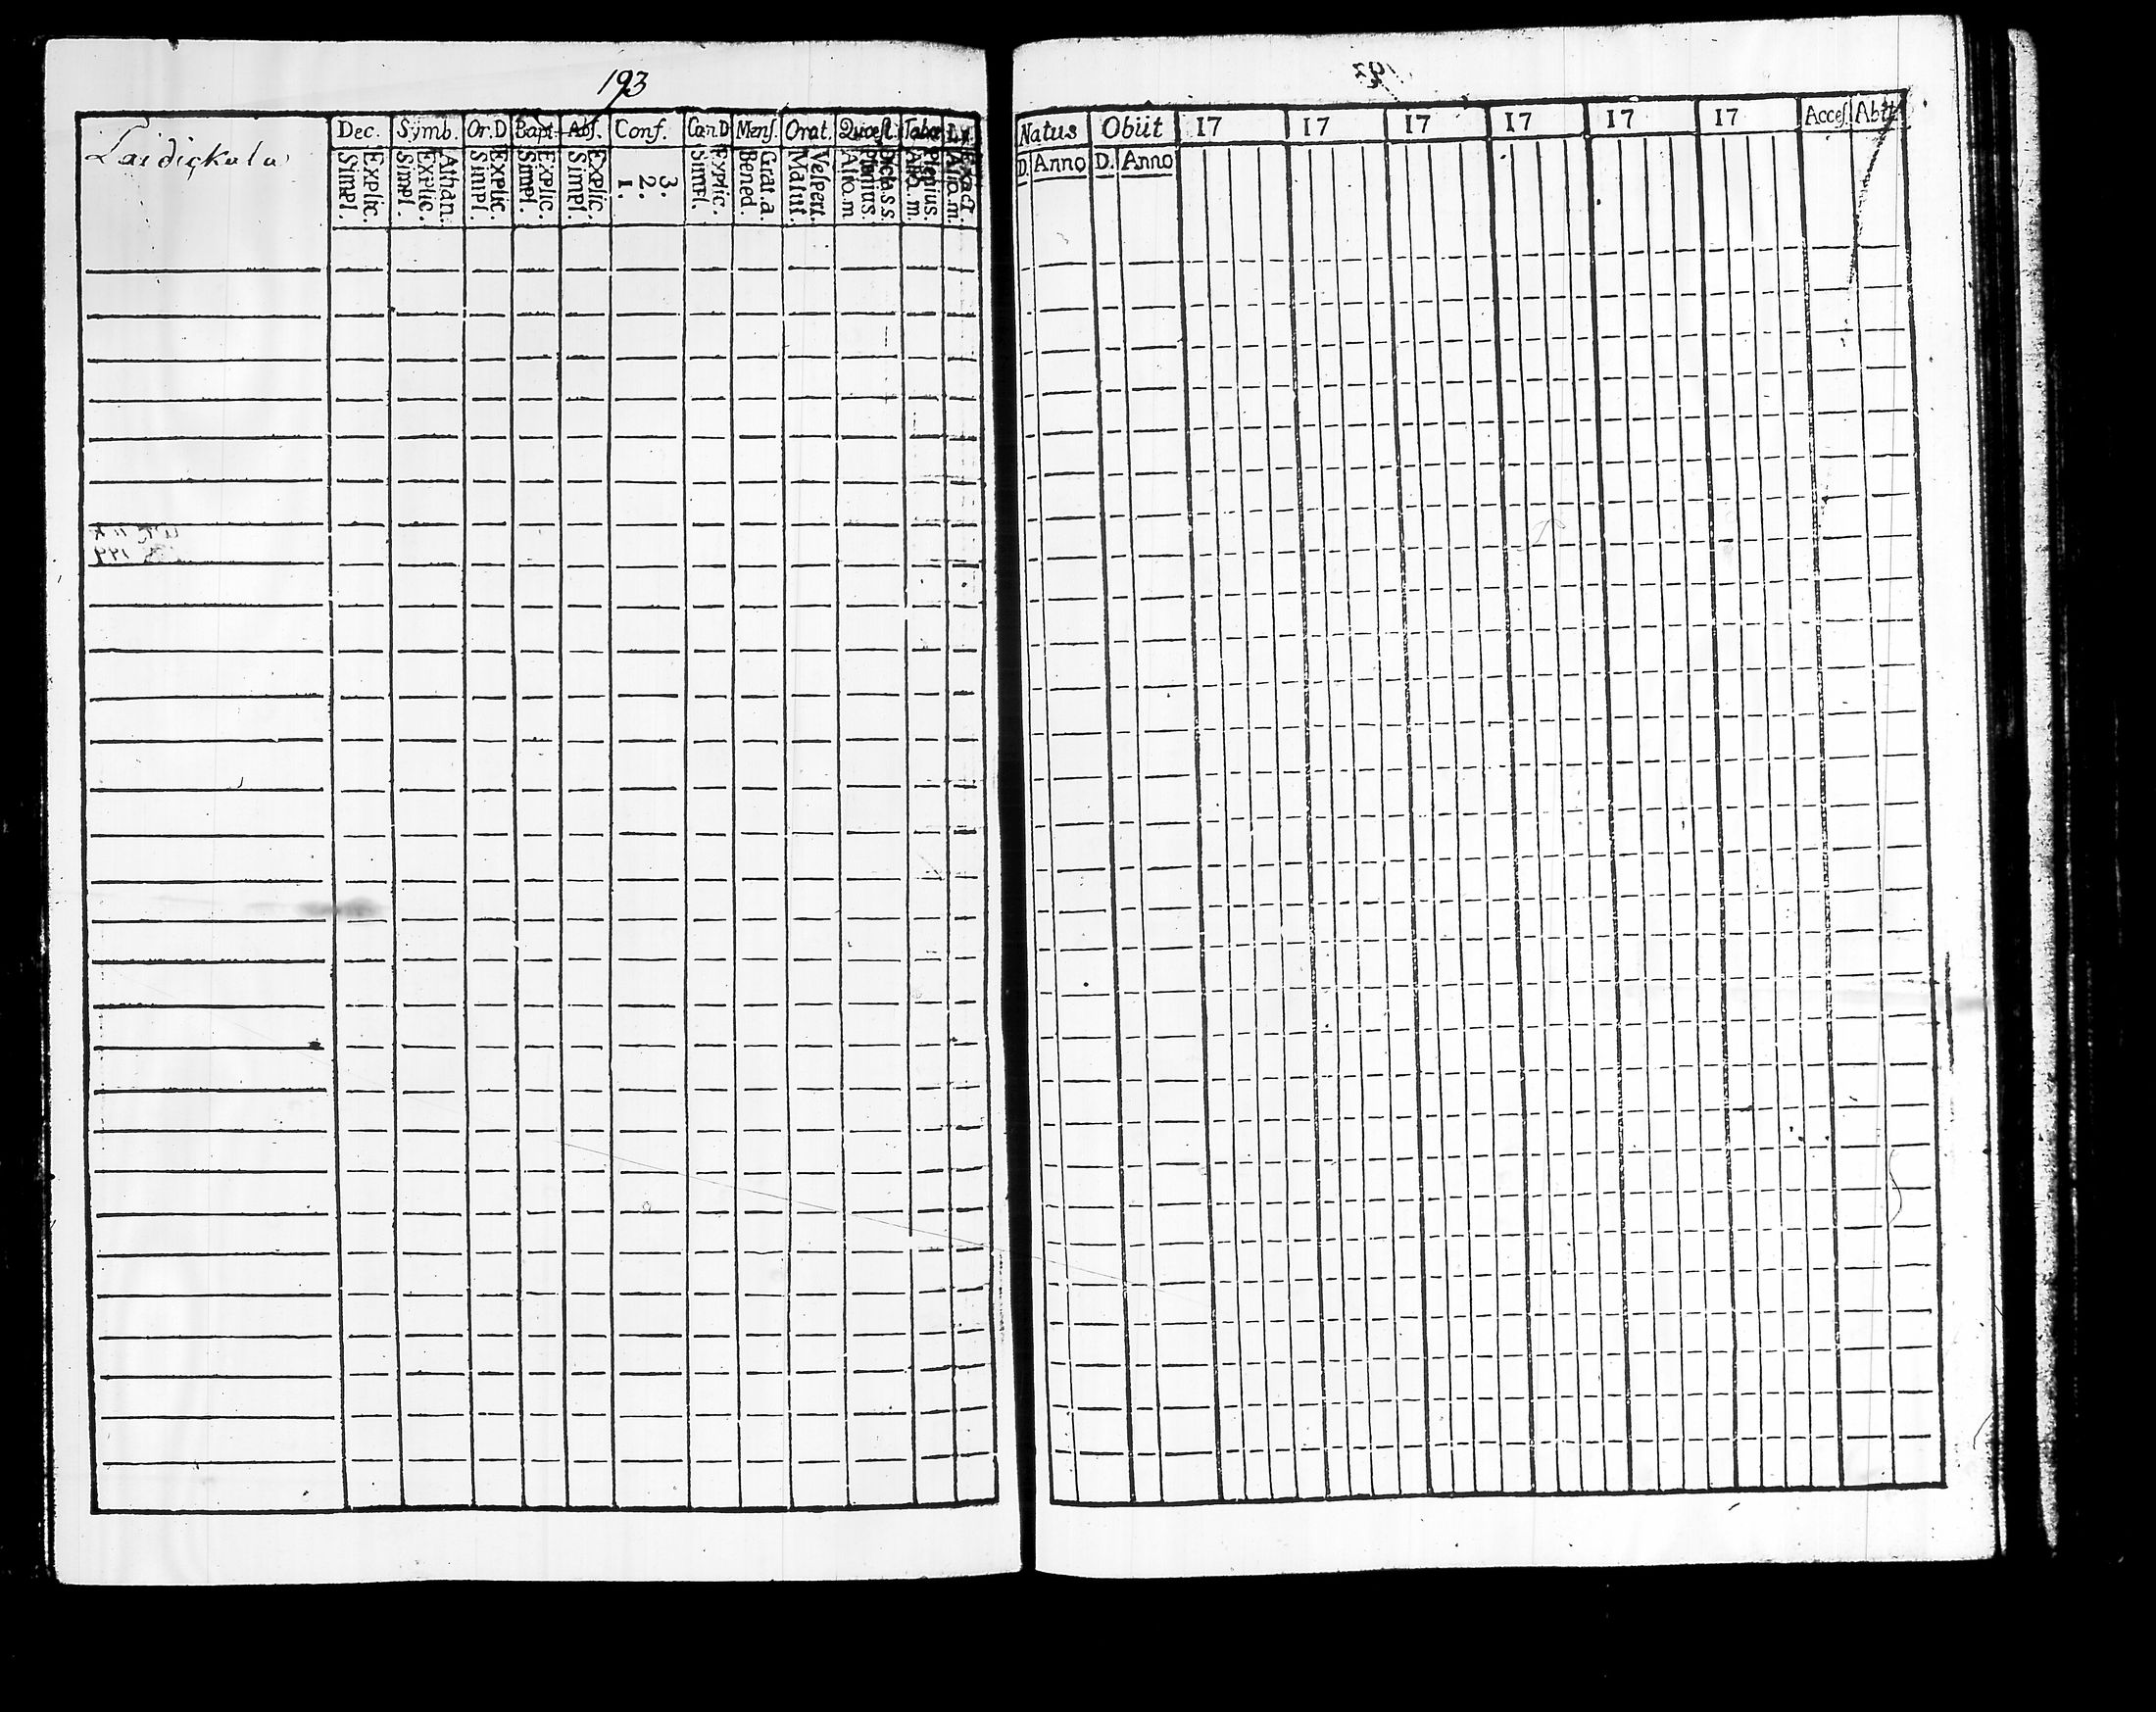 193
Laidickala
Dec. Symb. Or.D Bapt. Abs. Conf. Can.D Mens. Orat. Quæst. Tabæ
Explic. Simpl.
Athan. Explic. Simpl.
Explic. Simpl.
Explic. Simpl.
Explic. Simpl.
3. 2. 1.
Explic. Simpl.
Grat. a. Bened.
Velpert. Matut.
Dicta s.s. Plenius. Alio. m
Plenius. Alio. m.
Exact. Alio. m.
Natus Obiit 17 17 17 17 17 17 Acces. Abiit
D. Anno D. Anno